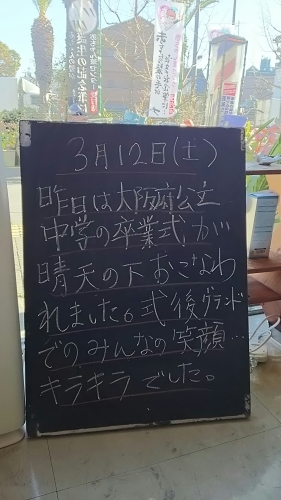 3月12日(土)
昨日は大阪府公立
中学の卒業式が
晴天の下おこなわ
れました。式後グランド
でのみんなの笑顔…
キラキラでした。